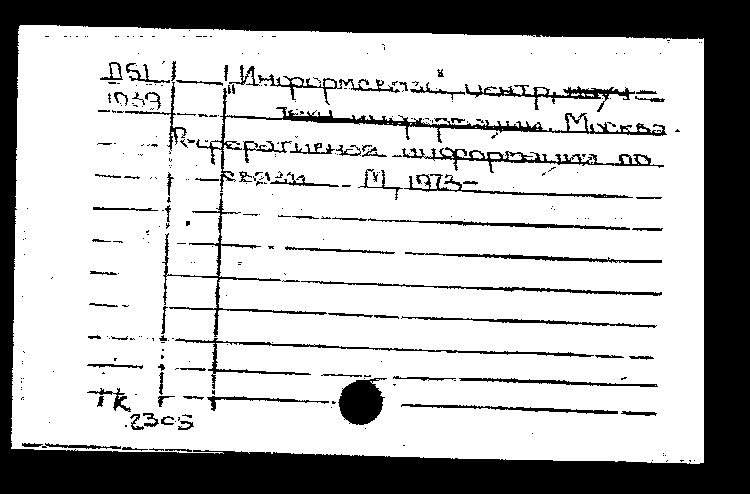 П51 "Информсвязь", центр, науч-
1039 техн информации. Москва.
Реферативная информация по
связи М, 1973-
ТК
2305